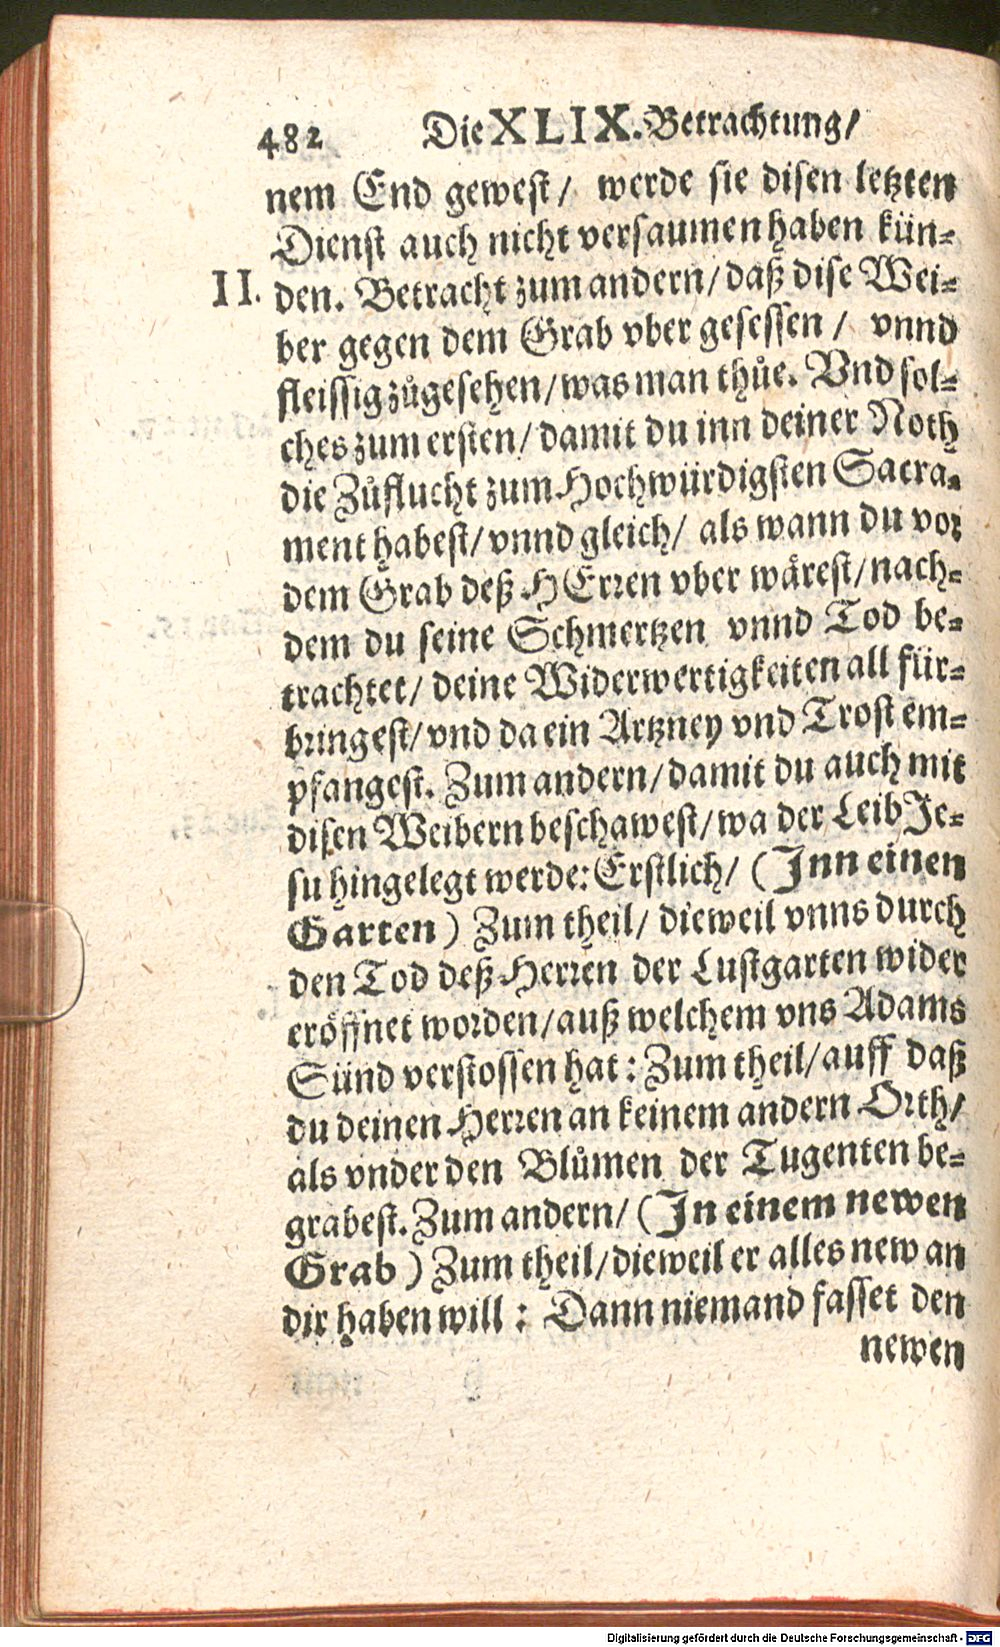 482 Die XLIX. Betrachtung/
nem End gewest/ werde sie disen letzten
Dienst auch nicht versaumen haben kün-
II. den. Betracht zum andern/ daß dise Wei-
ber gegen dem Grab vber gesessen / vnnd
fleissig zůgesehen/ was man thůe. Vnd sol-
ches zum ersten/ damit du inn deiner Noth
die Zůflucht zum Hochwürdigsten Sacra-
ment habest/ vnnd gleich/ als wann du vor
dem Grab deß HErren vber wårest/ nach-
dem du seine Schmertzen vnnd Tod be-
trachtet/ deine Widerwertigkeiten all für-
bringest/ vnd da ein Artzney vnd Trost em-
pfangest. Zum andern/ damit du auch mit
disen Weibern beschawest/ wa der Leib Je-
su hingelegt werde: Erstlich/ (Jnn einen
Garten) Zum theil/ dieweil vnns durch
den Tod deß Herren der Lustgarten wider
eröffnet worden/ auß welchem vns Adams
Sünd verstossen hat: Zum theil/ auff daß
du deinen Herren an keinem andern Orth/
als vnder den Blůmen der Tugenten be-
grabest. Zum andern/ (Jn einem newen
Grab) Zum theil/ dieweil er alles new an
dir haben will: Dann niemand fasset den
newen
Digitalisierung gefördert durch die Deutsche Forschungsgemeinschaft - DFG